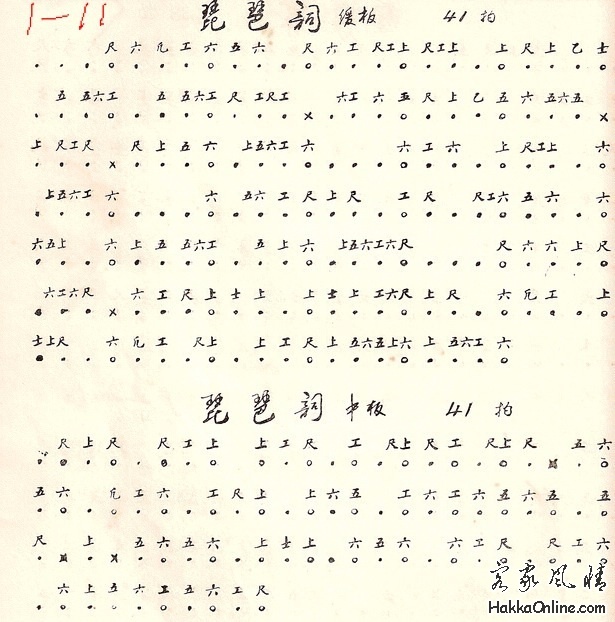 1-11
琵琶詞 緩板 41拍
尺六凡工六五六 尺六工尺工上尺工上 上尺上乙士
五 五六工 五五六工尺工尺工 六工六五尺上乙五六五六五
上尺工尺 尺上五六上五六工六 六工六 上尺工上 六
上五六工六 六 五六工尺上尺 工尺 尺工六五六六
六五上 六上五五六工 五上六 上五六工六尺 尺六六上尺
六工六尺 六工尺上士上 上士上工六尺上尺 六凡工 上
士上尺 六凡工 尺上 上工尺上五六五上六上五六工六
琵琶詞 中板 41拍
尺上尺 尺工上 上工尺 工 尺上尺工 尺上尺 五六
五六 凡工六 工尺上 上六五 工六工六五六五 五
尺 上 五六五六 上士上 六五六 六工尺 尺工六
六上五六工五六工尺
客家風情
HakkaOnline.com